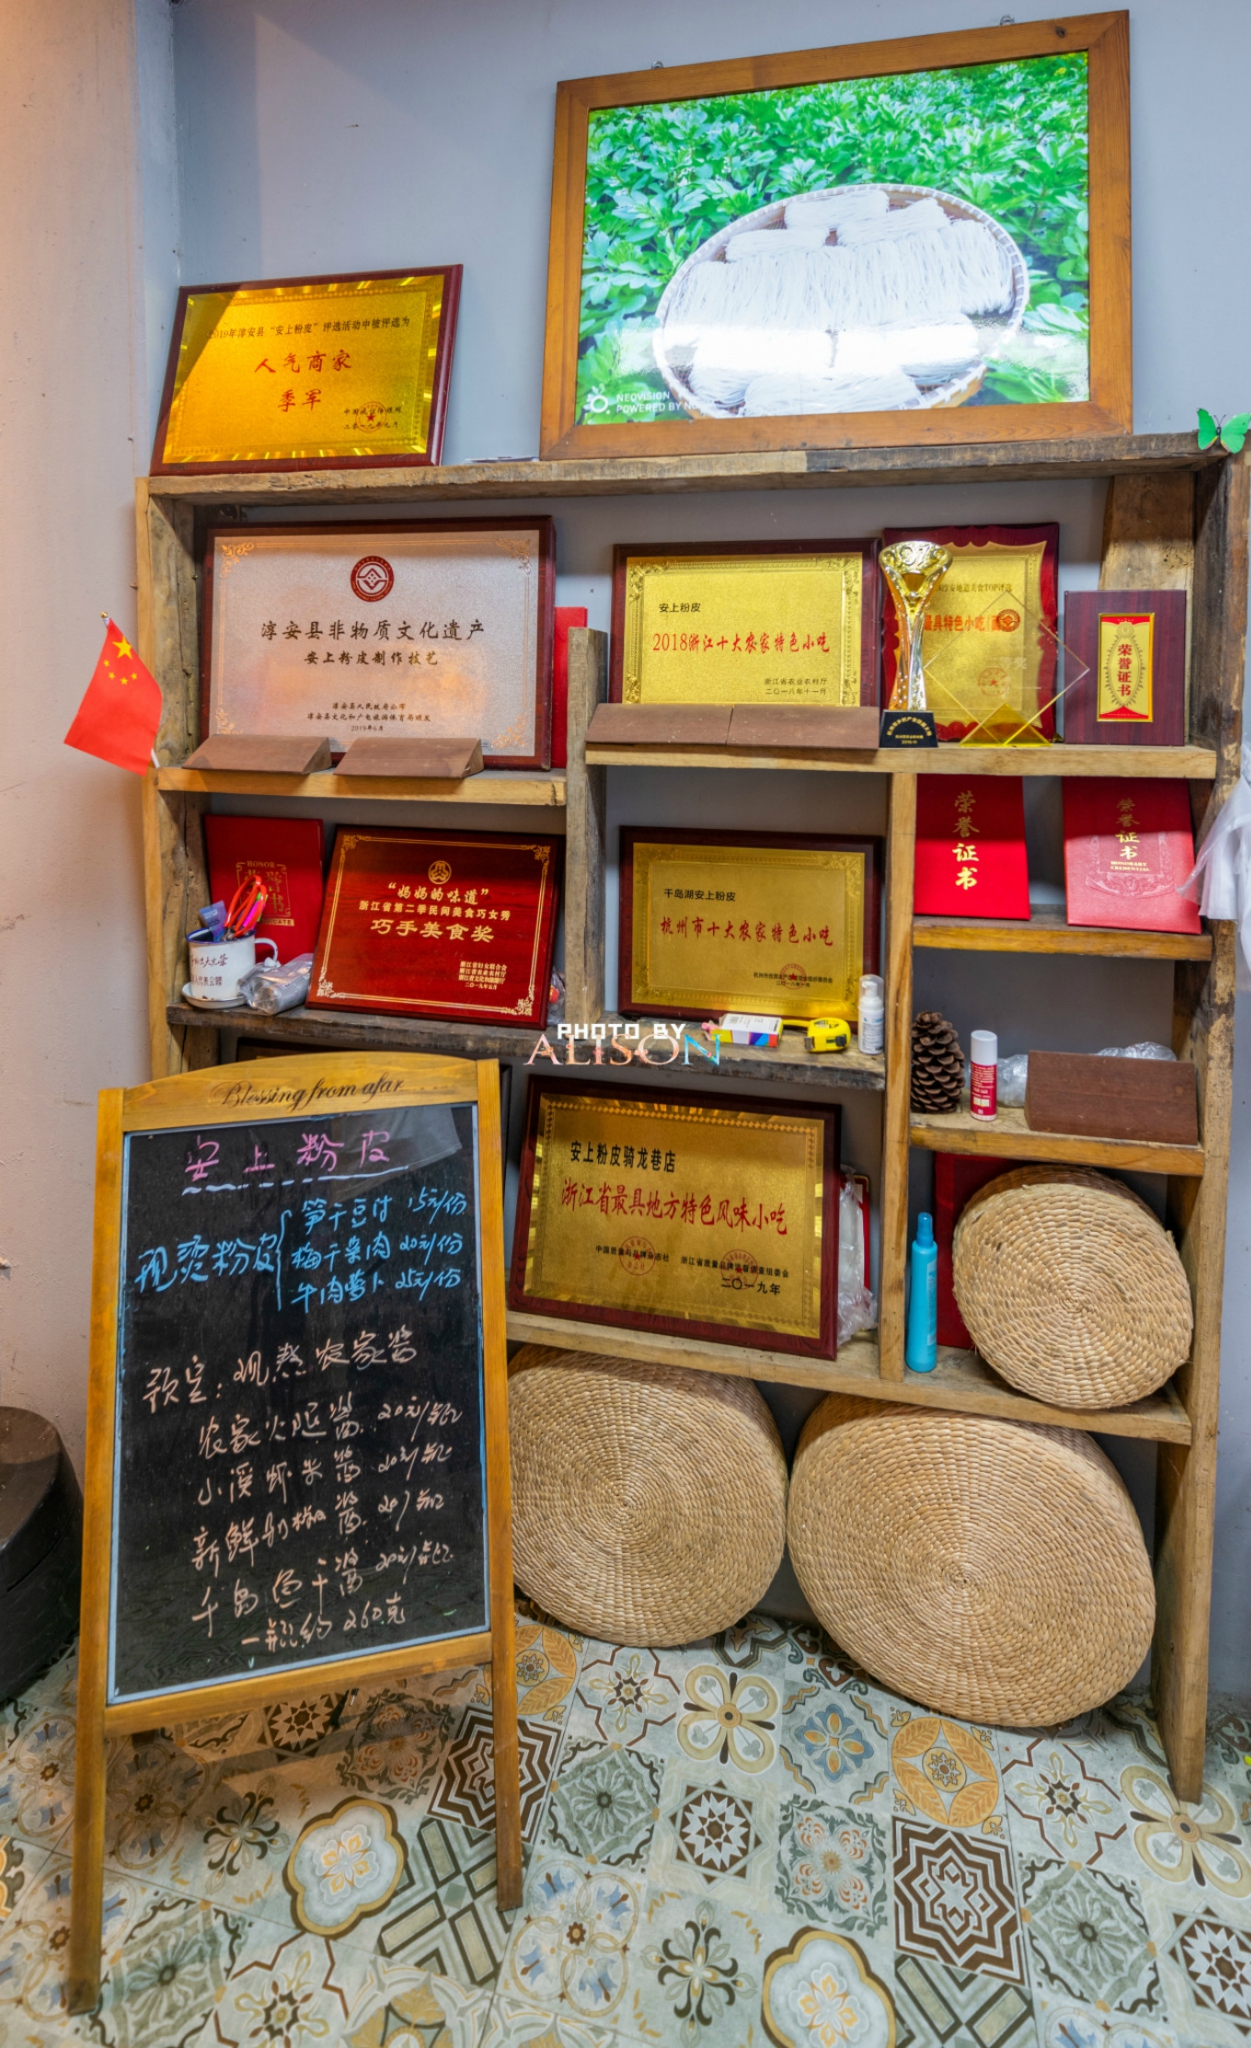 NEOVISION
POWERED BY
2019年淳安县“安上粉皮”评选活动中被评选为
人气商家
季军
二〇一九年九月
淳安县非物质文化遗产
安上粉皮制作技艺
淳安县人民政府公布
淳安县文化和广电旅游体育局颁发
2019年6月
安上粉皮
2018浙江十大农家特色小吃
浙江省农业农村厅
二〇一八年十一月
荣誉证书
荣誉证书
荣誉证书
HONOR
“妈妈的味道”
浙江省第二季民间美食巧女秀
巧手美食奖
浙江省妇女联合会
浙江省农业农村厅
二〇一九年五月
千岛湖安上粉皮
杭州市十大农家特色小吃
PHOTO BY
ALISON
安上粉皮骑龙巷店
浙江省最具地方特色风味小吃
中国质量与品牌杂志社
浙江省质量品牌调查组委会
二〇一九年
Blessing from afar
安上粉皮
现烫粉皮
笋干豆付 15元/份
梅干菜肉 20元/份
牛肉萝卜 25元/份
预定:现熬农家酱
农家火腿酱 20元/瓶
小溪虾米酱 20元/瓶
新鲜剁椒酱
千岛鱼干酱 20元/瓶
一瓶约260克